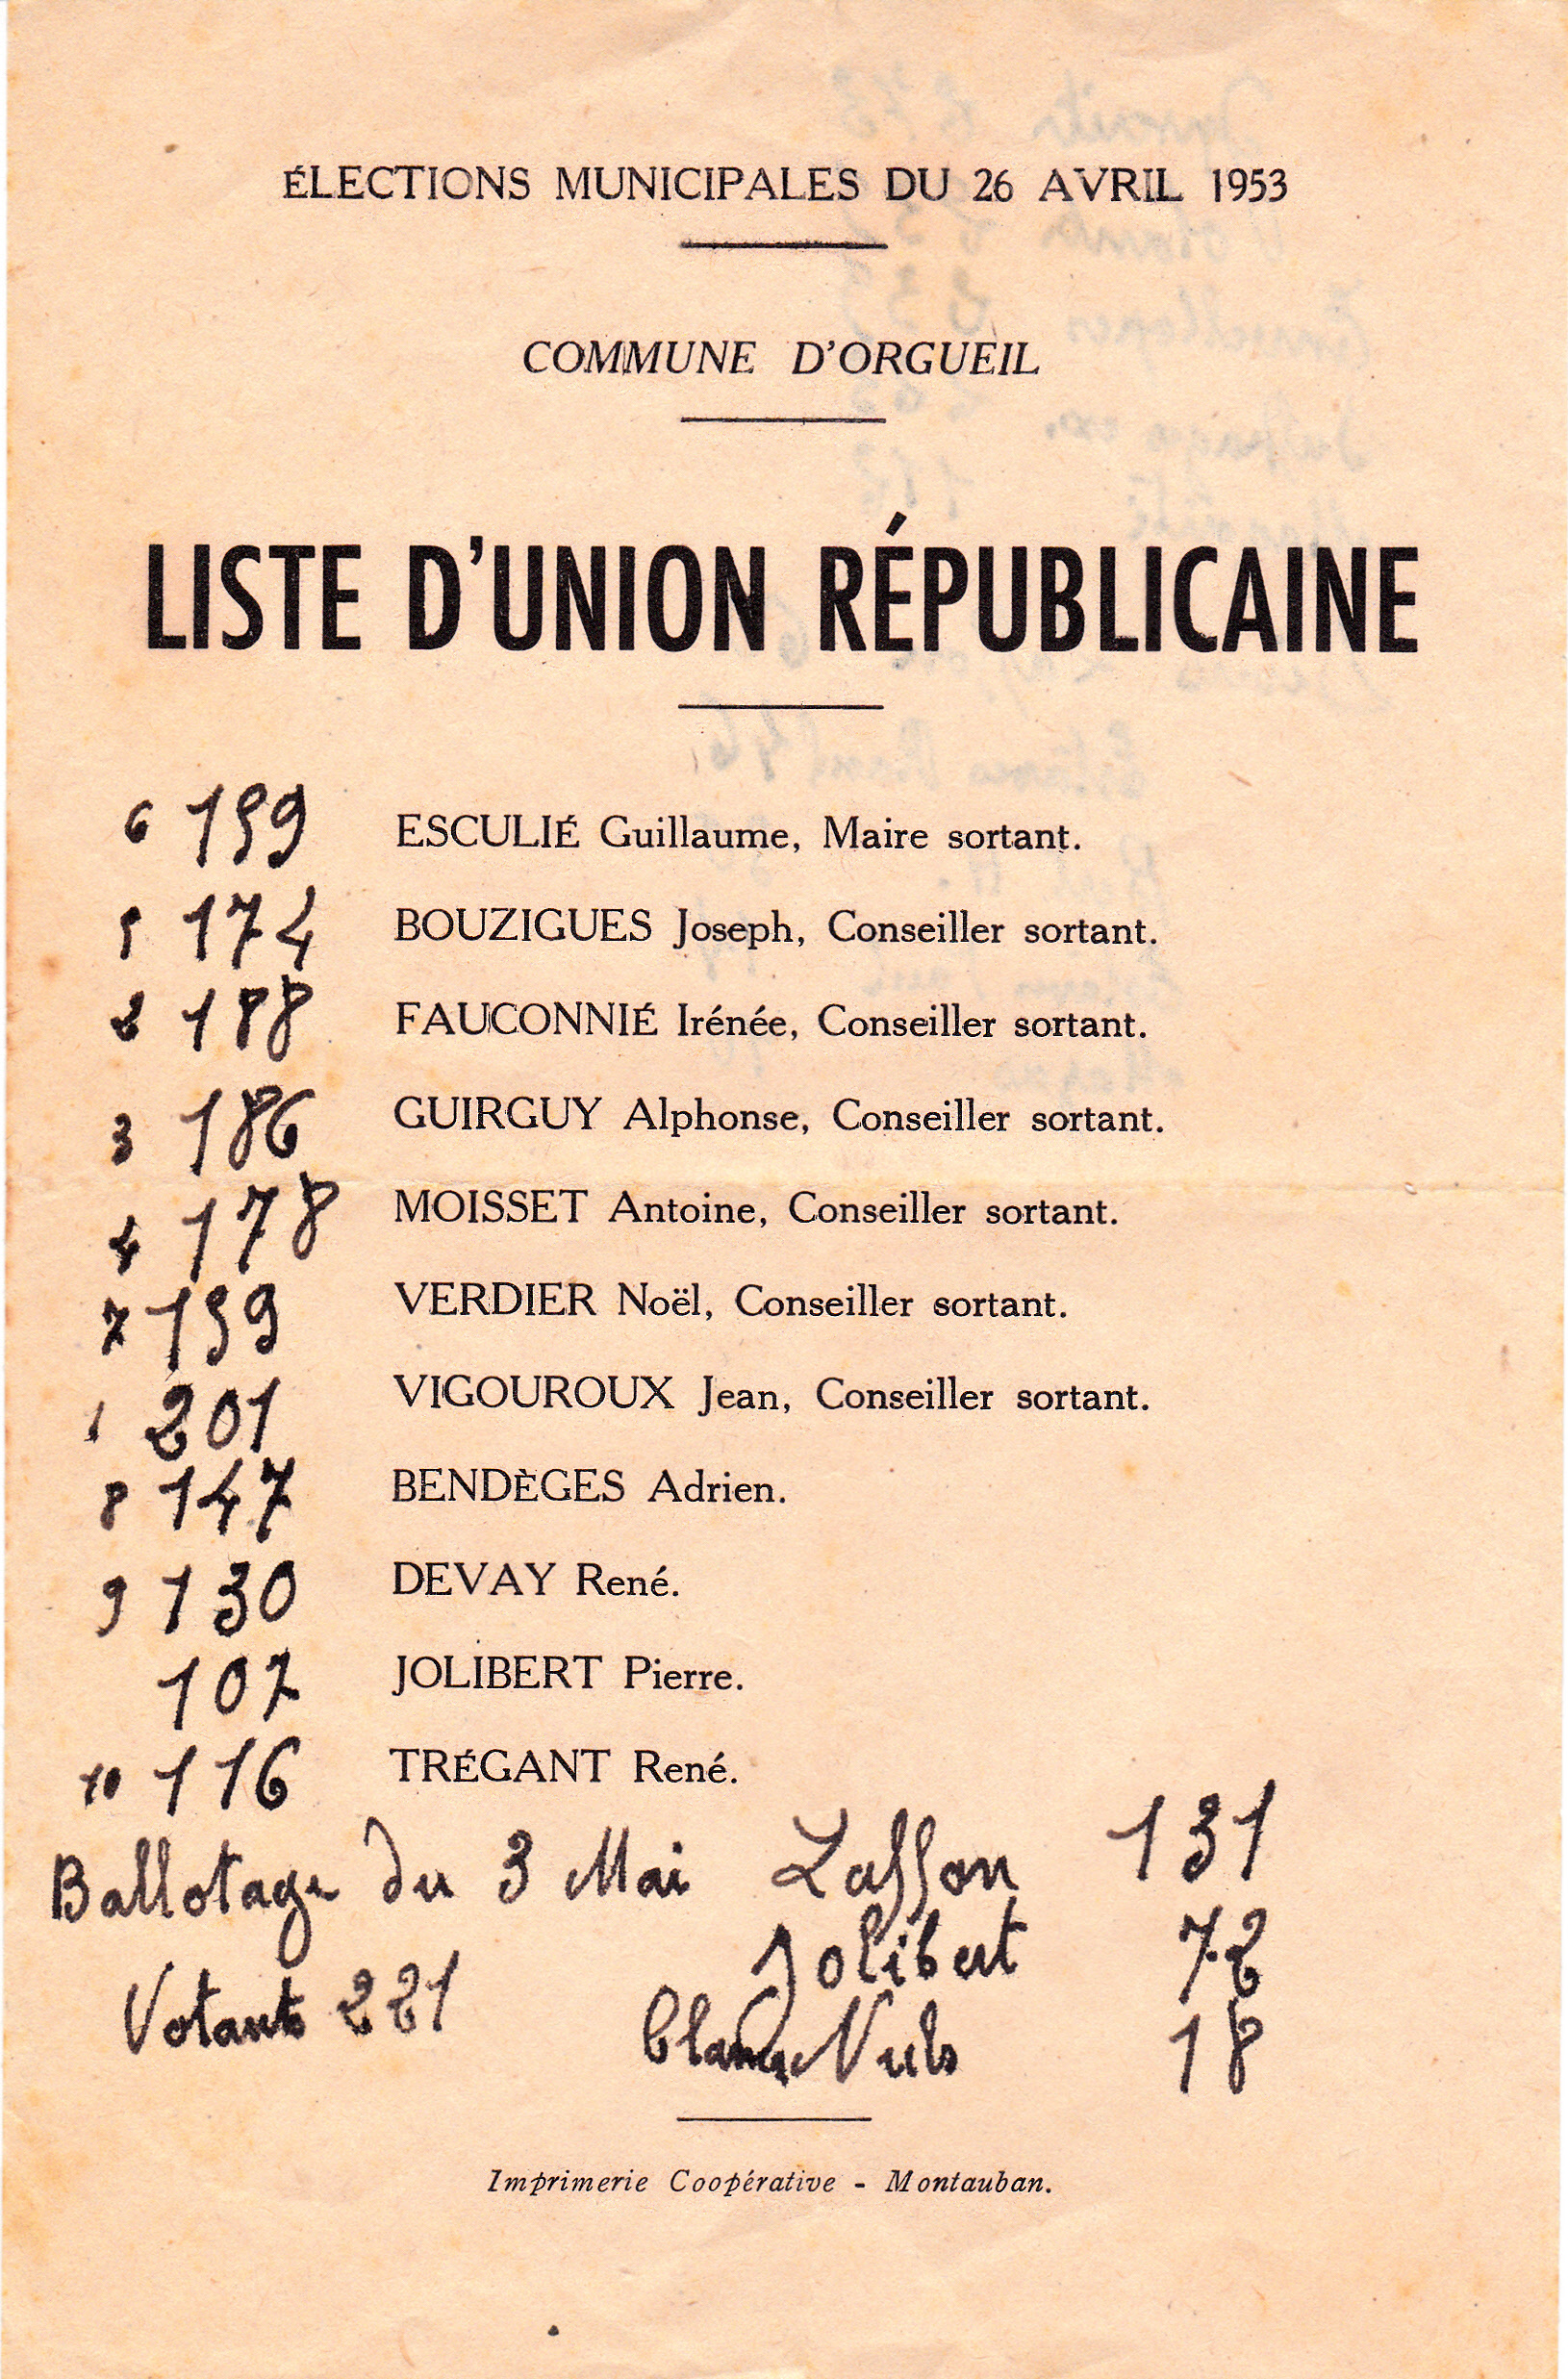 ÉLECTIONS MUNICIPALES DU 26 AVRIL 1953
COMMUNE D'ORGUEIL
LISTE D'UNION RÉPUBLICAINE
6 159 ESCULIÉ Guillaume, Maire sortant.
5 174 BOUZIGUES Joseph, Conseiller sortant.
2 188 FAUCONNIÉ Irénée, Conseiller sortant.
3 186 GUIRGUY Alphonse, Conseiller sortant.
4 178 MOISSET Antoine, Conseiller sortant.
7 159 VERDIER Noël, Conseiller sortant.
1 201 VIGOUROUX Jean, Conseiller sortant.
8 147 BENDÈGES Adrien.
9 130 DEVAY René.
107 JOLIBERT Pierre.
10 116 TRÉGANT René.
Ballotage du 3 Mai Lasson 131
Jolibert 72
Votants 221 Nuls 18
Imprimerie Coopérative - Montauban.